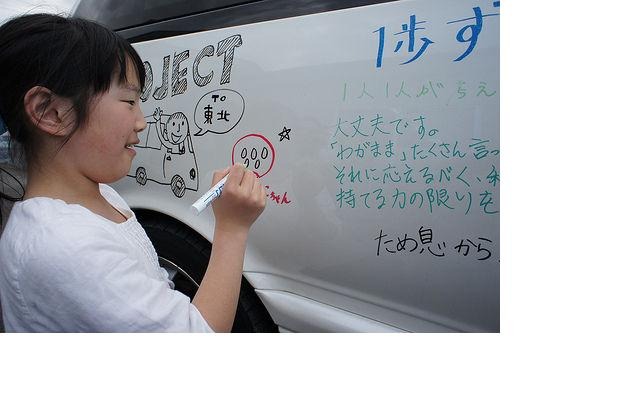 JECT
TO
東北
1歩ず
1人1人が
大丈夫です。
「わがまま」たくさん言っ
それに応えるべく、
持てる力の限りを
ため息から
ちゃん